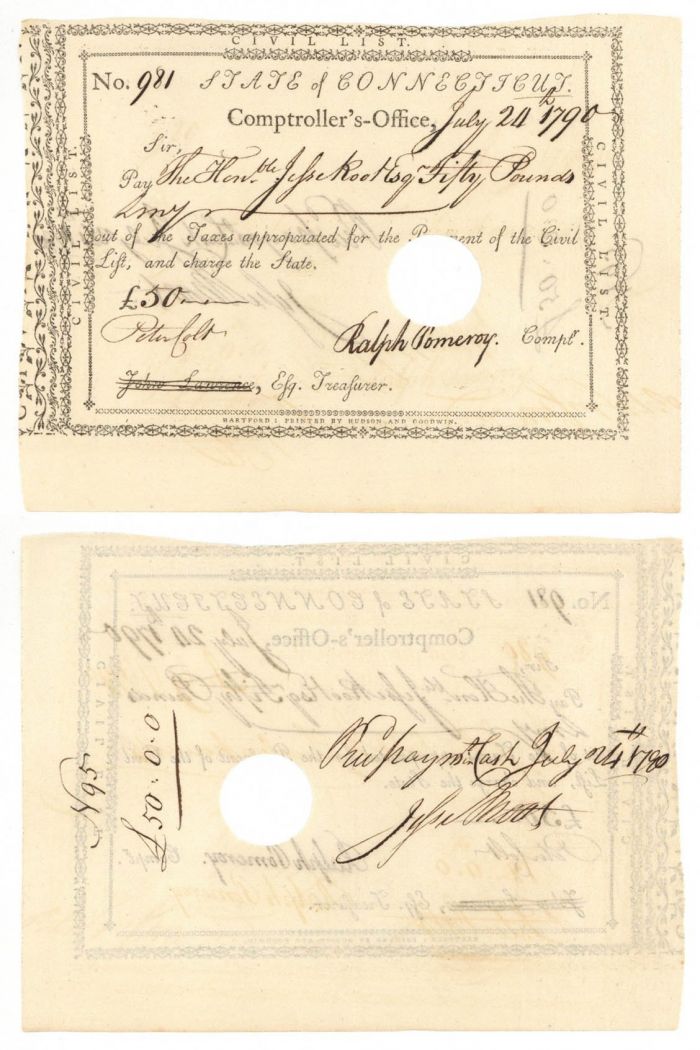 CIVIL LIST.
No. 981 STATE of CONNECTICUT.
Comptroller's-Office, July 24th 1790
Sir,
Pay The Honble Jesse Root Esqr Fifty Pounds
Lmy
out of the Taxes appropriated for the Payment of the Civil
List, and charge the State.
£50
Peter Colt
Ralph Pomeroy. Compt.
John Lawrence, Esq. Treasurer.
HARTFORD: PRINTED BY HUDSON AND GOODWIN.
CIVIL LIST.
CIVIL LIST.
N 95
£50.0.0
Cash July 24th 1790
Jesse Root